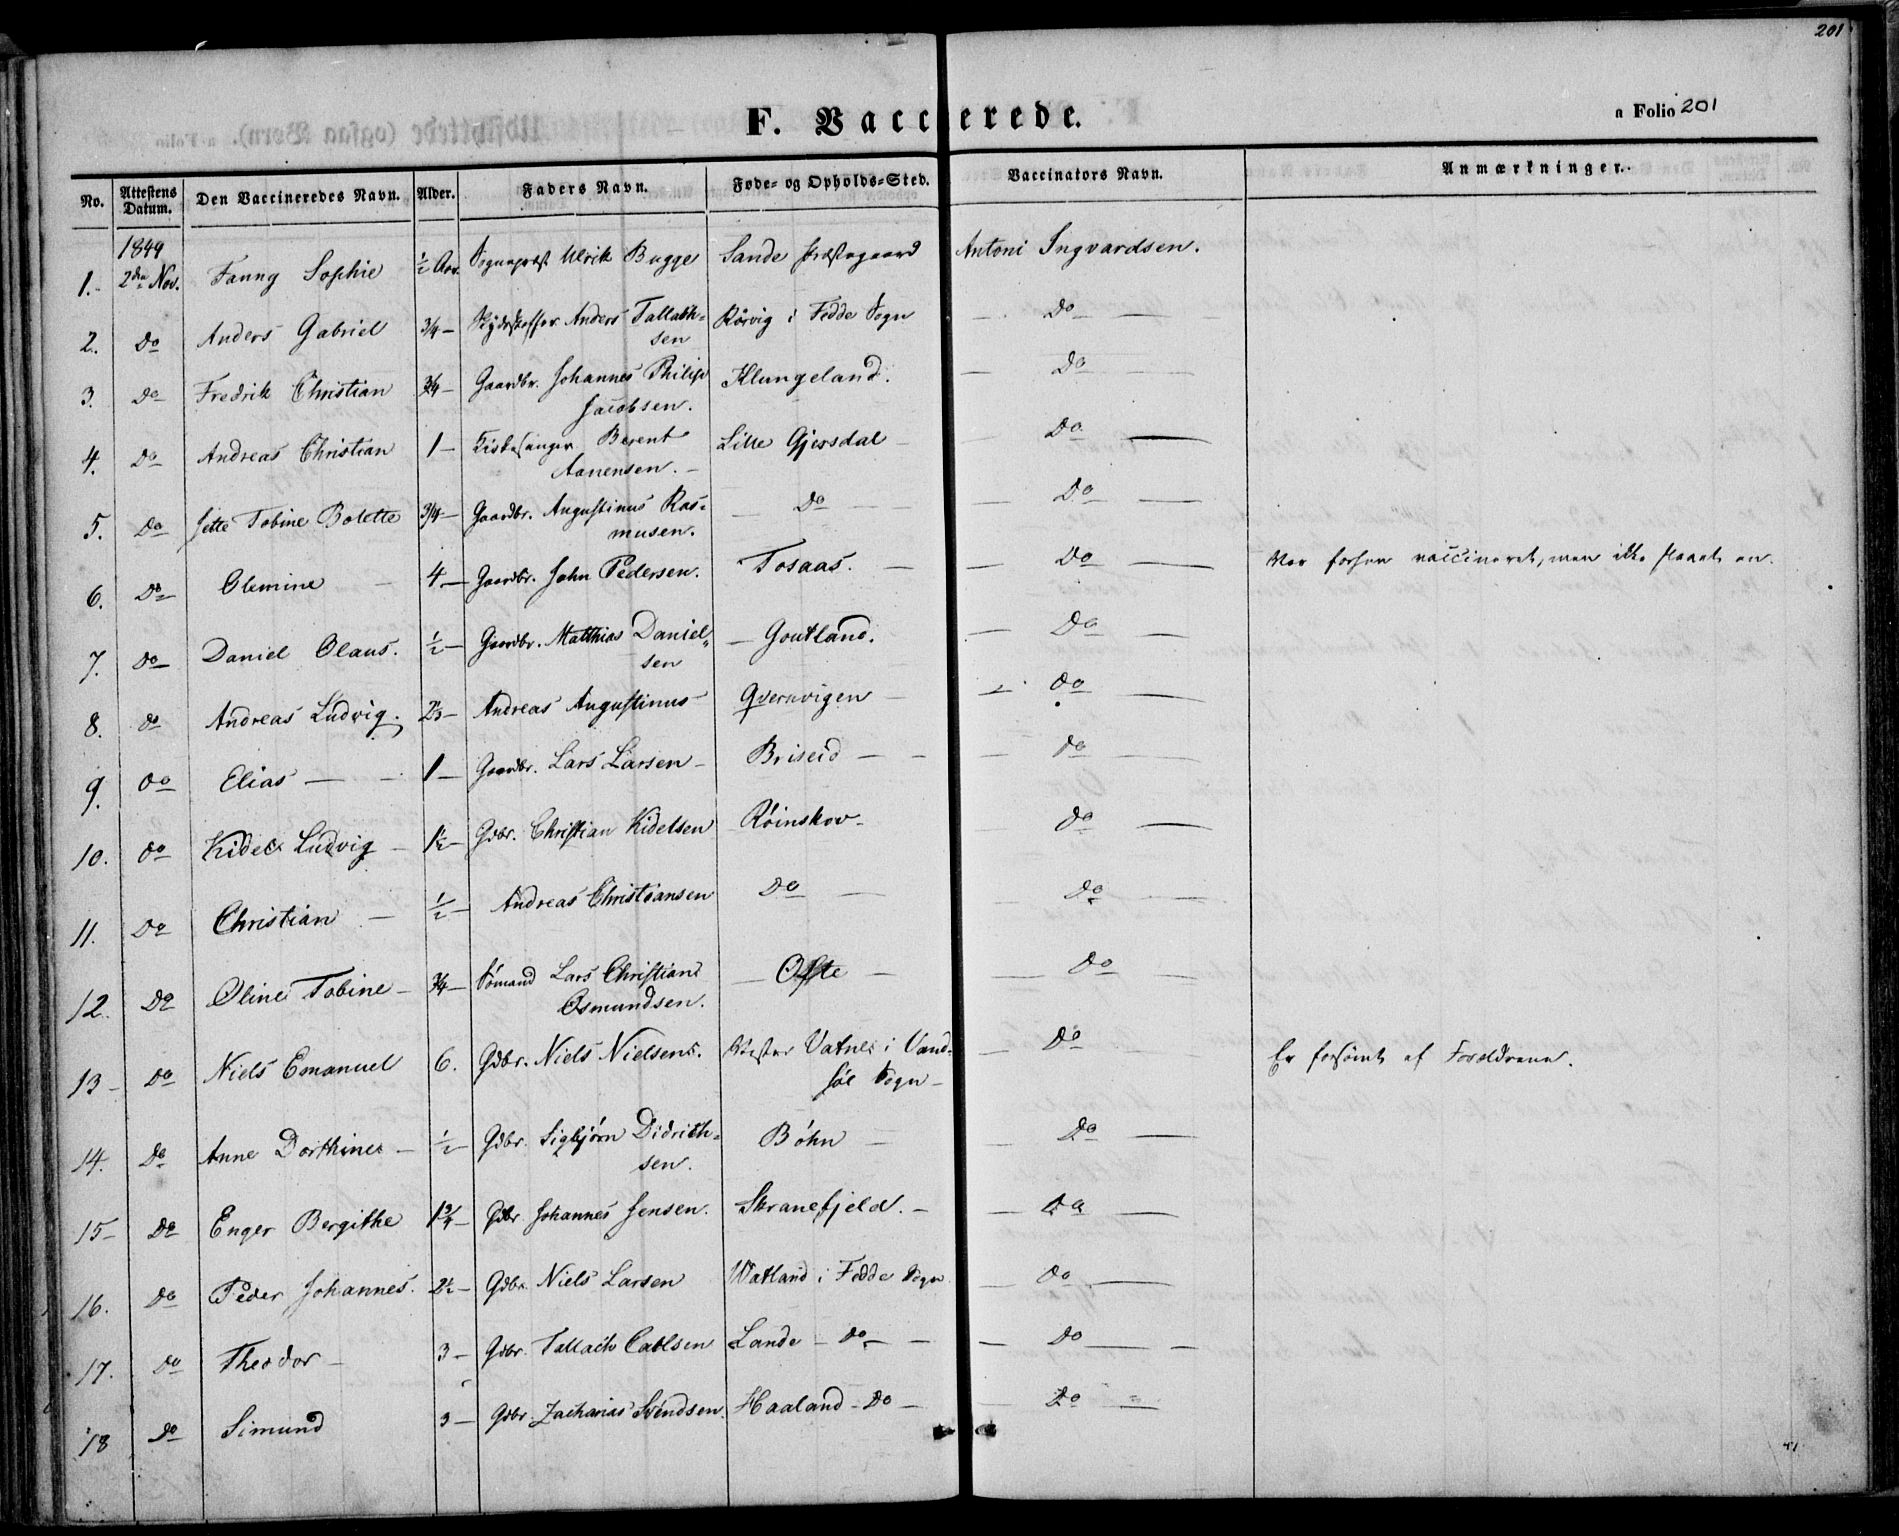 201
F. Vaccinerede.
a Folio 201
No. Attestens Datum. Den Vaccineredes Navn. Alder. Faders Navn. Føde- og Opholds-Sted. Vaccinators Navn. Anmærkninger.
1849
1. 2den Nov. Fanny Sophie ½ Aar. Sogneprest Ulrik Bugge Sande Præstegaard Antoni Ingvardsen.
2. Do Anders Gabriel 3/4 — Skydsskaffer Anders Tallakh= Rørvig i Fedde Sogn — Do —
sen
3. Do Fredrik Christian 3/4 — Gaardbr. Johannes Philip Klungeland. — Do —
Jacobsen.
4. Do Andreas Christian 1 — Berent Lille Gjersdal — — Do —
Aanensen. —
5. Do Jette Tobine Bolette 3/4 — Gaardbr. Augustinus Ras= — Do — — Do —
musen.
6. Do Olemine — 4 — Gaardbr. John Pedersen. Tosaas. — — Do — Var forhen vaccineret, men ikke slaaet an.
7. Do Daniel Olaus. ½ — Gaardbr. Matthias Daniel= — Goutland. — Do —
sen
8. Do Andreas Ludvig. — Andreas Augustinus Qvernvigen — — Do —
9. Do Elias — — 1 — Gaardbr. Lars Larsen — Briseid — — — Do —
10. Do Kidel Ludvig — 1½ — Gdbr. Christian Kidelsen Røinskov — Do —
11. Do Christian — ½ — Andreas Christiansen Do — Do —
12. Do Oline Tobine — 3/4 — Sømand Lars Christian — Ofte — — Do —
Osmundsen.
13 — Do Niels Emanuel 6. Gdbr. Niels Nielsen. Vester Vatne i Vand= — Do Er forsømt af Forældrene.
søe Sogn —
14. Do Anne Dorthine — ½ — Gdbr. Sigbjørn Didrikh= Bøhn — — Do —
sen.
15 — Do Enger Bergithe 1 3/4 — Gdbr Johannes Jensen. Skranefjeld. — — Do —
16. Do Peder Johannes. 2½ — Gdbr. Niels Larsen Watland i Fedde Sogn — Do —
17. Do Theodor — 3 — Gdbr. Tallach Carlsen Lande — Do — — — Do — —
18 Do Simund 3 — Gdbr. Zacharias Svendsen. Haaland — Do — — Do —